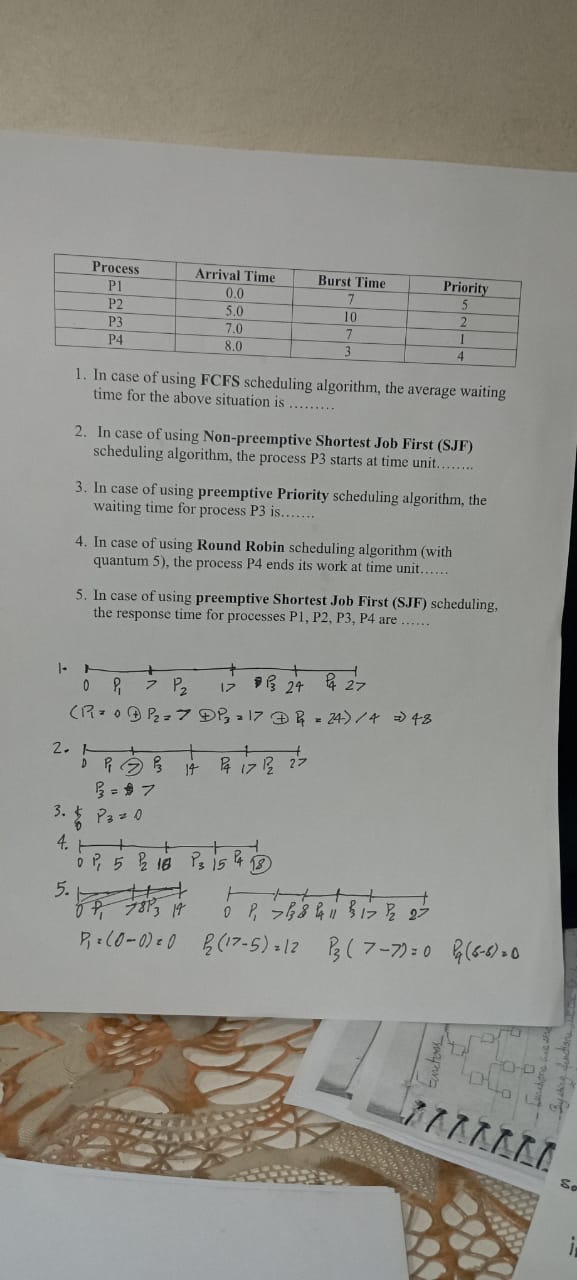 Process Arrival Time Burst Time Priority
P1 0.0 7 5
P2 5.0 10 2
P3 7.0 7 1
P4 8.0 3 4
1. In case of using FCFS scheduling algorithm, the average waiting
time for the above situation is .........
2. In case of using Non-preemptive Shortest Job First (SJF)
scheduling algorithm, the process P3 starts at time unit........
3. In case of using preemptive Priority scheduling algorithm, the
waiting time for process P3 is.......
4. In case of using Round Robin scheduling algorithm (with
quantum 5), the process P4 ends its work at time unit......
5. In case of using preemptive Shortest Job First (SJF) scheduling,
the response time for processes P1, P2, P3, P4 are ......
1-
0 P1 7 P2 17 P3 24 P4 27
(P1 = 0 ⊕ P2 = 7 ⊕ P3 = 17 ⊕ P4 = 24) / 4 ⇒ 48
2.
0 P1 7 P3 14 P4 17 P2 27
P3 = 7
3. P3 = 0
4.
0 P1 5 P2 10 P3 15 P4 18
5.
0 P1 7 8 P3 14 0 P1 7 P3 8 P4 11 P3 17 P2 27
P1 = (0-0) = 0 P2 (17-5) = 12 P3 (7-7) = 0 P4 (8-8) = 0
Functions